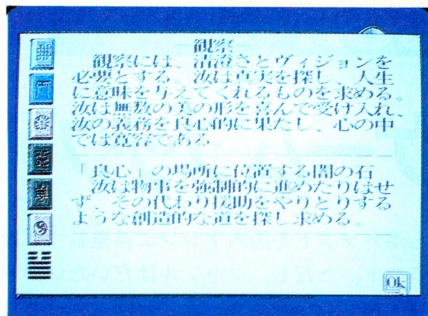 観察
観察には、清澄さとヴィジョンを
必要とする。汝は真実を探し、人生
に意味を与えてくれるものを求める。
汝は無数の美の形を喜んで受け入れ、
汝の義務を良心的に果たし、心の中
では寛容である
「良心」の場所に位置する闇の石
汝は物事を強制的に進めたりはせ
ず、その代わり援助をやりとりする
ような創造的な道を探し求める。
Ok